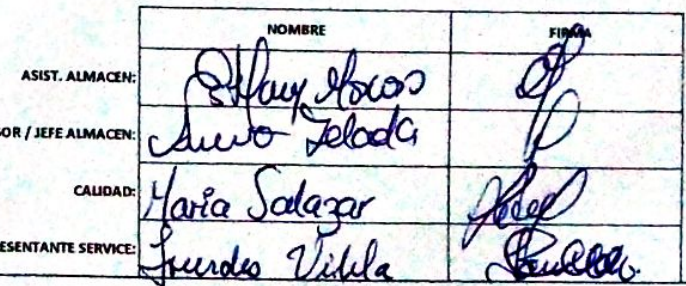 NOMBRE FIRMA
ASIST. ALMACEN: Marcos
OR / JEFE ALMACEN: Zelada
CALIDAD: Maria Salazar
ESENTANTE SERVICE: Lourdes Vilela